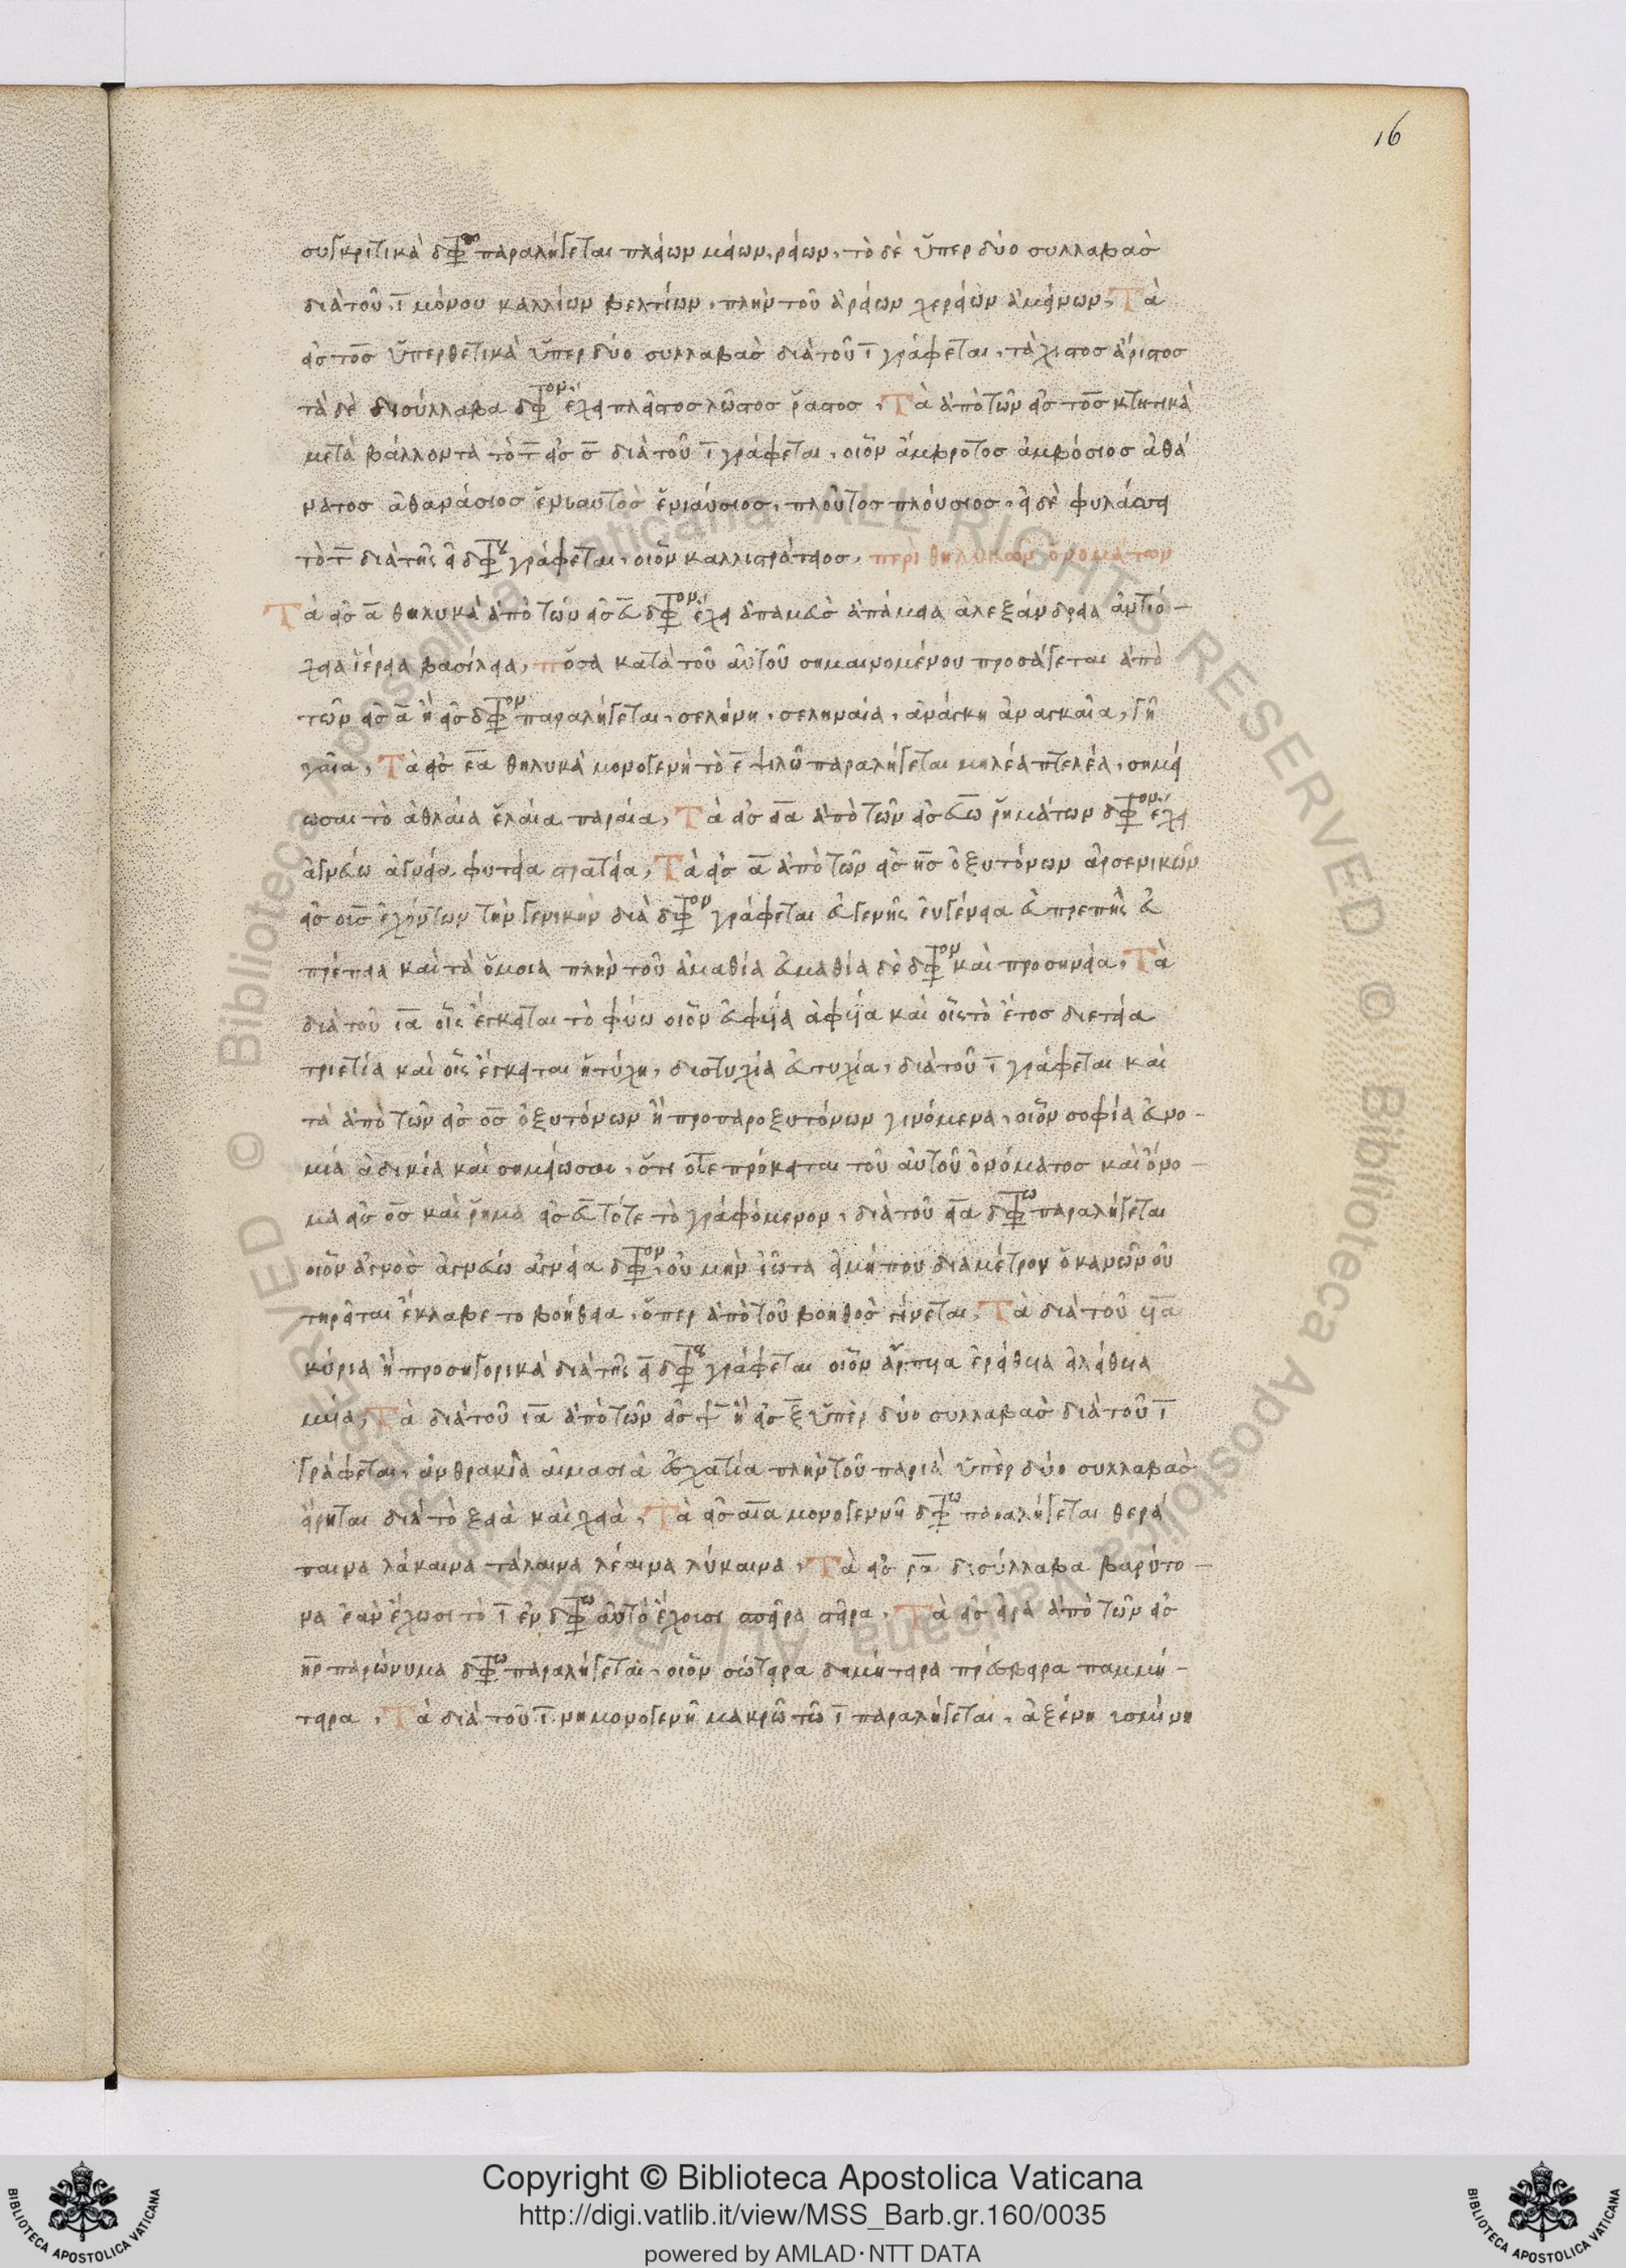 16
συγκριτικὰ δφω παραλήγεται πλείων μείων, ῥάων, τὸ δὲ ὑπερ δύο συλλαβασ
διὰ τοῦ, ῑ μόνου καλλίων βελτίων, πλὴν τοῦ ἀρείων χερείων ἀμείνων, Τὰ
εἰσ τοσ ὑπερθετικὰ ὑπερ δύο συλλαβασ διὰ τοῦ ῑ γράφεται, τάχιστοσ ἄριστοσ
τὰ δὲ δισύλλαβα δφτον, ἔχει πλεῖστοσ λῶστοσ ῥᾶστοσ, Τὰ ἀπὸ τῶν εἰσ τοσ κτητικὰ
μεταβάλλοντα τὸ τ̄ εἰσ σ̄ διὰ τοῦ ῑ γράφεται, οἷον ἄμβροτοσ ἀμβρόσιοσ ἀθά
νατοσ ἀθανάσιοσ ἐνιαυτὸσ ἐνιαύσιοσ, πλοῦτοσ πλούσιοσ, εἰ δὲ φυλάσσει
τὸ τ̄ διὰ τῆς ει δφγ γράφεται, οἷον καλλιστράτειοσ, περὶ θηλυκῶν ὀνομάτων
Τὰ εἰσ ᾱ θηλυκὰ ἀπὸ τῶν εἰσ ευ δφτον, ἔχει ἀπαμεὺσ ἀπάμεια ἀλεξάνδρεια ἀντιό-
χεια ἱέρεια βασίλεια, πὅσα κατὰ τοῦ αὐτοῦ σημαινομένου προσάγεται ἀπὸ
τῶν εἰσ ᾱ ἢ εἰσ δφτον παραλήγεται, σελήνη, σεληναία, ἀνάγκη ἀναγκαῖα, γῆ
γαῖα, Τὰ εἰσ ε̄α θηλυκὰ μονογενῆ τὸ ε̄ ψιλῶ παραλήγεται μηλέα πτελέα, σημεί
ωσαι τὸ ἀθλαία ἐλαία παρεία, Τὰ εἰσ εια ἀπὸ τῶν εἰσ ευω ῥημάτων δφτον, ἔχει
ἁγνεύω ἁγνεία φυτεία στρατεία, Τὰ εἰσ ᾱ ἀπὸ τῶν εἰσ ησ ὀξυτόνων ἀρσενικῶν
εἰσ οισ ἐχόντων τὴν γενικὴν διὰ δφτον γράφεται εὐγενὴς εὐγένεια εὐπρεπὴς εὐ
πρέπεια καὶ τὰ ὅμοια πλὴν τοῦ ἀμαθία εὐμαθία δὲ δφτον καὶ προσηνεία, Τὰ
διὰ τοῦ ια οἷς ἔγκειται τὸ φύω οἷον εὐφυΐα ἀφυΐα καὶ οἷς τὸ ἔτοσ διετεία
τριετία καὶ οἷς ἔγκειται ἡ τύχη, δυστυχία εὐτυχία, διὰ τοῦ ῑ γράφεται καὶ
τὰ ἀπὸ τῶν εἰσ οσ ὀξυτόνων ἢ προπαροξυτόνων γινόμενα, οἷον σοφία εὐνο-
μία ἀδικία καὶ σημείωσαι, ὅτι ὅτε πρόκειται τοῦ αὐτοῦ ὀνόματοσ καὶ ὄνο-
μα εἰσ οσ καὶ ῥῆμα εἰσ ευ τότε τὸ γραφόμενον, διὰ τοῦ εια δφω παραλήγεται
οἷον ἁγνὸσ ἁγνεύω ἁγνεία δφτον, οὐ μὴν ἰῶτα εἰ μήπου διὰ μέτρον ὁ κανὼν οὐ
τηρεῖται ἔκλαβε το βοήθεια, ὅπερ ἀπὸ τοῦ βοηθὸσ γίνεται, Τὰ διὰ τοῦ υια
κύρια ἢ προσηγορικὰ διὰ τῆς ει δφγ γράφεται οἷον ἅρπυια ἐρείθυια εἰλείθυια
μυῖα, Τὰ διὰ τοῦ ια ἀπὸ τῶν εἰσ ψ̄ ἢ εἰσ ξ̄ ὑπὲρ δύο συλλαβασ διὰ τοῦ ῑ
γράφεται, ἀνθρακιὰ αἱμασιὰ πλὴν τοῦ παρειὰ ὑπὲρ δύο συλλαβασ
εἴρηται διὰ τὸ ξειὰ καὶ χειὰ, Τὰ εἰσ αινα μονογεννῆ δφω παραλήγεται θερά
παινα λάκαινα τάλαινα λέαινα λύκαινα, Τὰ εἰσ ρα δισύλλαβα βαρύτο-
να ἐὰν ἔχωσι τὸ ῑ ἐν δφω αὐτὸ ἔχουσι σπεῖρα στεῖρα, Τὰ εἰσ ειρα ἀπὸ τῶν εἰσ
ηρ παρώνυμα δφω παραλήγεται, οἷον σώτειρα δημήτειρα πρέσβειρα παμμή-
τειρα, Τὰ διὰ τοῦ ῑ νη μονογενῆ μακρῶ τῶ ῑ παραλήγεται, ἀξίνη ὑσμίνη
Copyright © Biblioteca Apostolica Vaticana
http://digi.vatlib.it/view/MSS_Barb.gr.160/0035
powered by AMLAD·NTT DATA